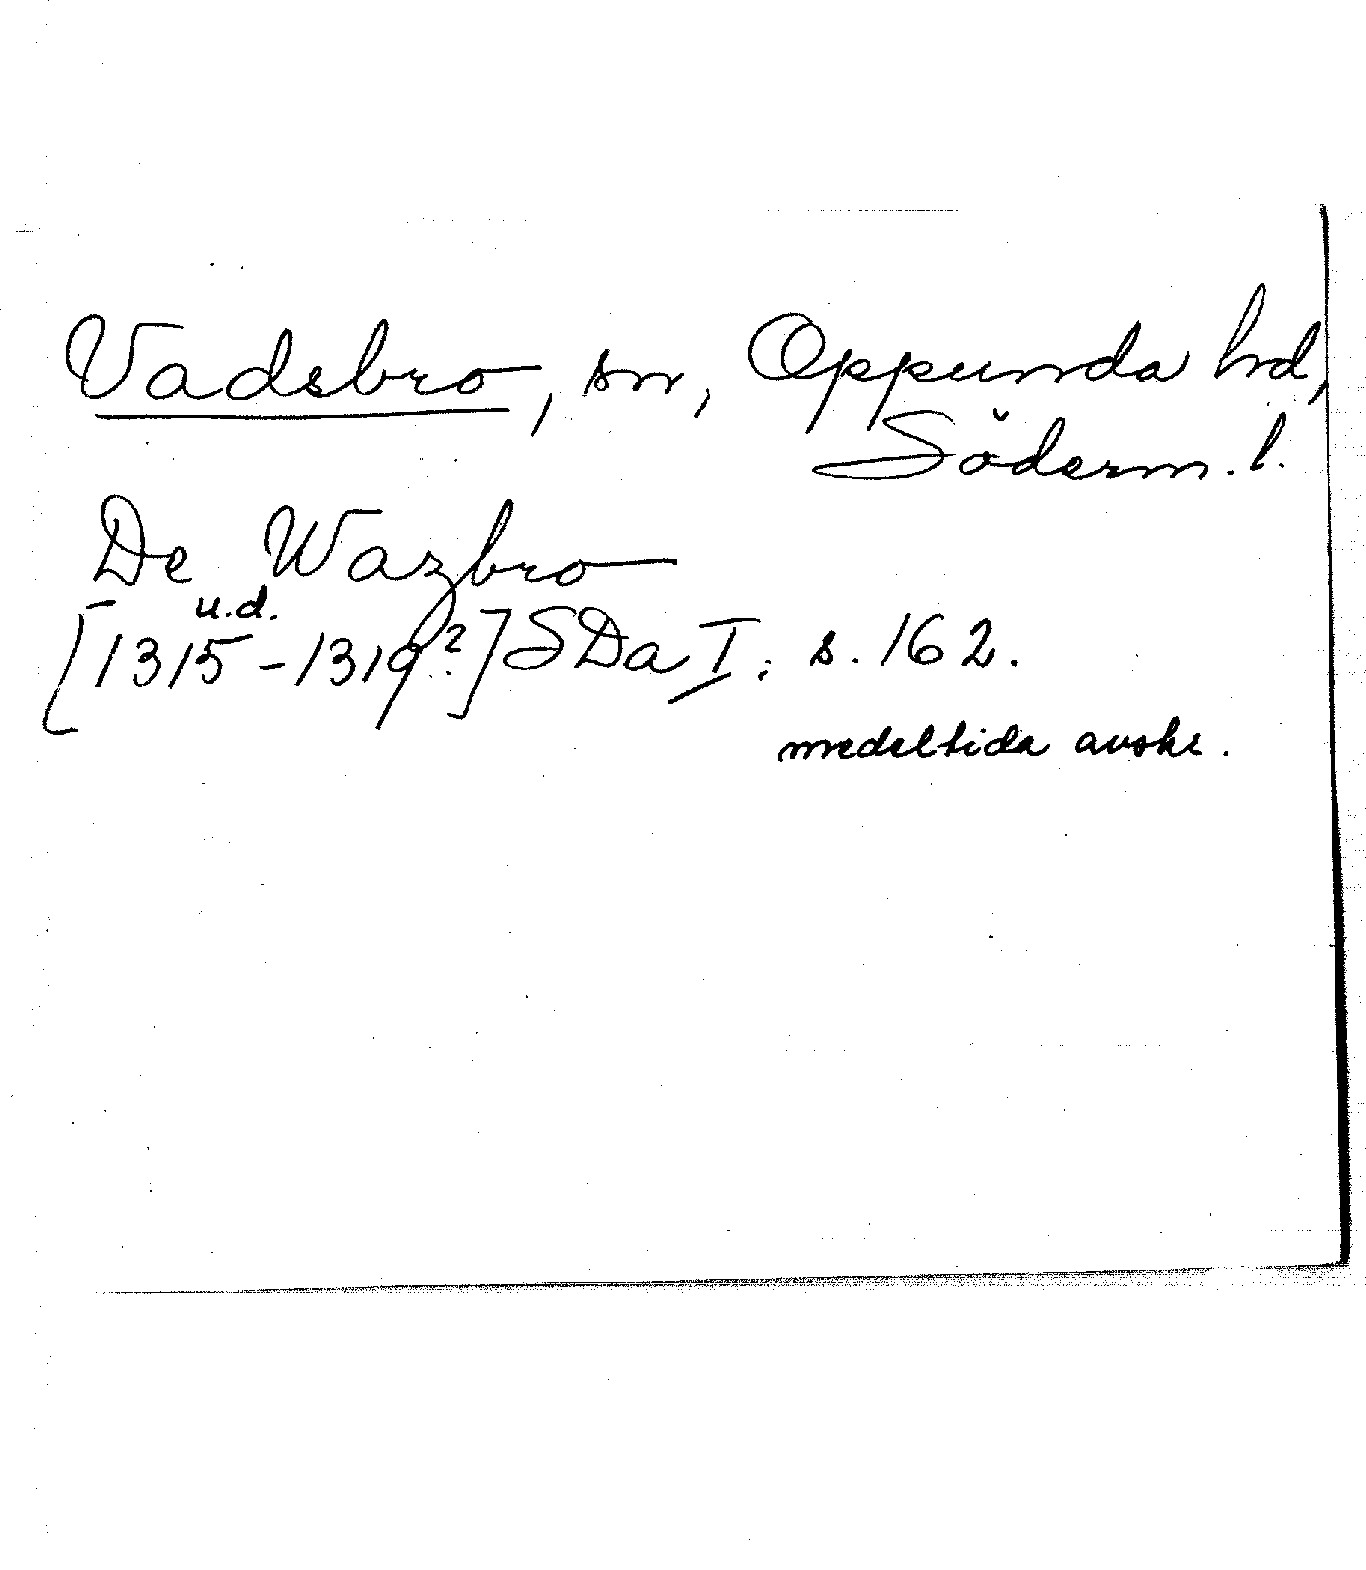 Vadsbro, sn, Oppunda hd,
Söderm. l.
De Wazbro
u.d.
[1315-1319?] SDa I: s. 162.
medeltida avskr.